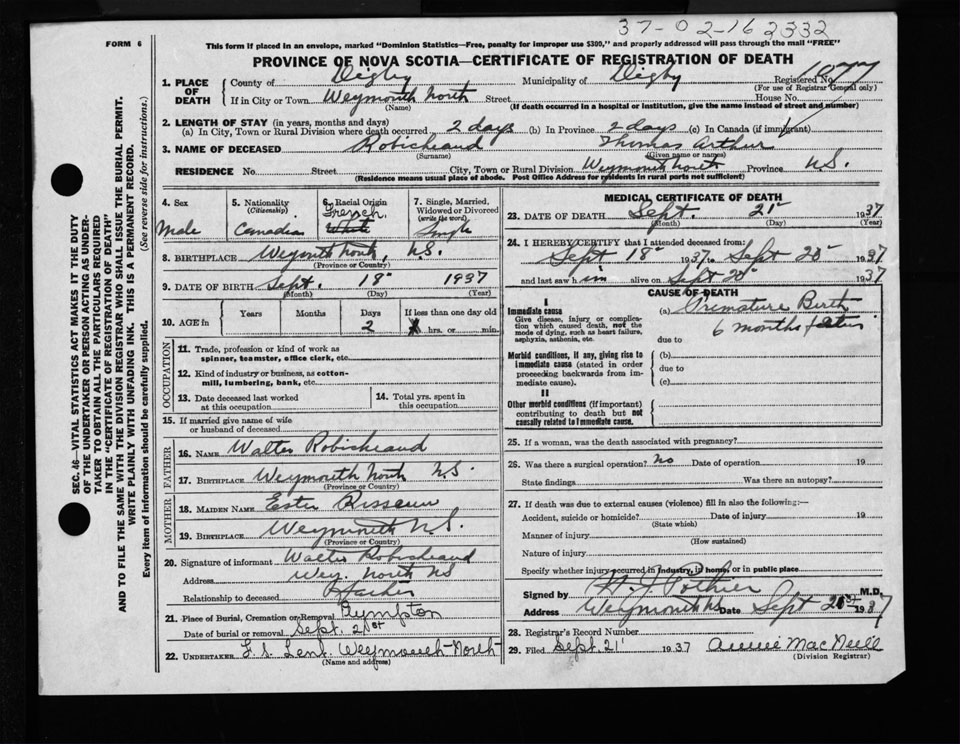 37-02-16 2332
FORM 6
This form if placed in an envelope, marked "Dominion Statistics—Free, penalty for improper use $300," and properly addressed will pass through the mail "FREE"
PROVINCE OF NOVA SCOTIA—CERTIFICATE OF REGISTRATION OF DEATH
1. PLACE OF DEATH
County of Digby Municipality of Digby Registered No. 1077
(For use of Registrar General only)
If in City or Town Weymouth North Street House No.
(Name) (If death occurred in a hospital or institution, give the name instead of street and number)
2. LENGTH OF STAY (in years, months and days)
(a) In City, Town or Rural Division where death occurred 2 days (b) In Province 2 days (c) In Canada (if immigrant)
3. NAME OF DECEASED Robicheaud Thomas Arthur
(Surname) (Given name or names)
RESIDENCE No. Street City, Town or Rural Division Weymouth North Province N.S.
(Residence means usual place of abode. Post Office Address for residents in rural parts not sufficient)
SEC. 46—VITAL STATISTICS ACT MAKES IT THE DUTY
OF THE UNDERTAKER OR PERSON ACTING AS UNDER-
TAKER TO OBTAIN ALL THE PARTICULARS REQUIRED
IN THE "CERTIFICATE OF REGISTRATION OF DEATH"
AND TO FILE THE SAME WITH THE DIVISION REGISTRAR WHO SHALL ISSUE THE BURIAL PERMIT.
WRITE PLAINLY WITH UNFADING INK. THIS IS A PERMANENT RECORD.
Every item of information should be carefully supplied. (See reverse side for instructions.)
4. Sex
Male
5. Nationality
(Citizenship)
Canadian
6. Racial Origin
French
White
7. Single, Married, Widowed or Divorced
(write the word)
Single
8. BIRTHPLACE Weymouth North, N.S.
(Province or Country)
9. DATE OF BIRTH Sept. 18 1937
(Month) (Day) (Year)
10. AGE in
Years Months Days If less than one day old
2 hrs. or min.
OCCUPATION
11. Trade, profession or kind of work as
spinner, teamster, office clerk, etc.
12. Kind of industry or business, as cotton-
mill, lumbering, bank, etc.
13. Date deceased last worked
at this occupation
14. Total yrs. spent in
this occupation
15. If married give name of wife
or husband of deceased
FATHER
16. NAME Walter Robicheaud
17. BIRTHPLACE Weymouth North N.S.
(Province or Country)
MOTHER
18. MAIDEN NAME Ester
19. BIRTHPLACE Weymouth N.S.
(Province or Country)
20. Signature of informant Walter Robicheaud
Address Wey. North NS
Relationship to deceased Father
21. Place of Burial, Cremation or Removal Plympton
Date of burial or removal Sept. 21st
22. UNDERTAKER Weymouth North
(Name and address)
MEDICAL CERTIFICATE OF DEATH
23. DATE OF DEATH Sept. 21 1937
(Month) (Day) (Year)
24. I HEREBY CERTIFY that I attended deceased from:
Sept 18 1937 to Sept 20 1937
and last saw him alive on Sept 20 1937
CAUSE OF DEATH
I
Immediate cause
Give disease, injury or complica-
tion which caused death, not the
mode of dying, such as heart failure,
asphyxia, asthenia, etc.
(a) Premature Birth
6 months
due to
Morbid conditions, if any, giving rise to
immediate cause (stated in order
proceeding backwards from im-
mediate cause).
(b)
due to
(c)
II
Other morbid conditions (if important)
contributing to death but not
causally related to immediate cause.
25. If a woman, was the death associated with pregnancy?
26. Was there a surgical operation? No Date of operation 19
State findings Was there an autopsy?
27. If death was due to external causes (violence) fill in also the following:—
Accident, suicide or homicide? Date of injury 19
(State which)
Manner of injury
(How sustained)
Nature of injury
Specify whether injury occurred in industry, in home, or in public place
Signed by Pothier M.D.
Address Weymouth NS Date Sept 1937
28. Registrar's Record Number
29. Filed Sept. 21 1937 Annie MacNeill
(Division Registrar)